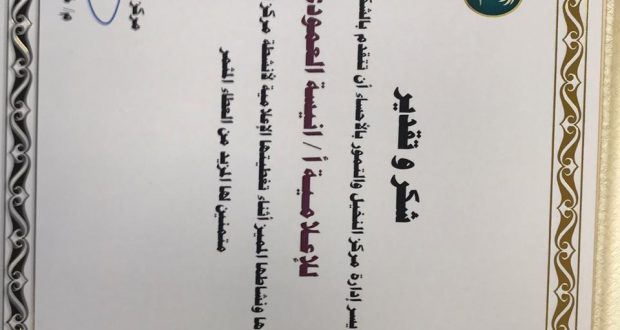 شكر و تقدير
يسر إدارة مركز النخيل والتمور بالأحساء أن تتقدم بالشك
للإعلامية أ / انيسة العمود
ها ونشاطها المميز أثناء تغطيتها الإعلامية لأنشطة مركز
متمنين لها المزيد من العطاء المثمر
مركز
م/